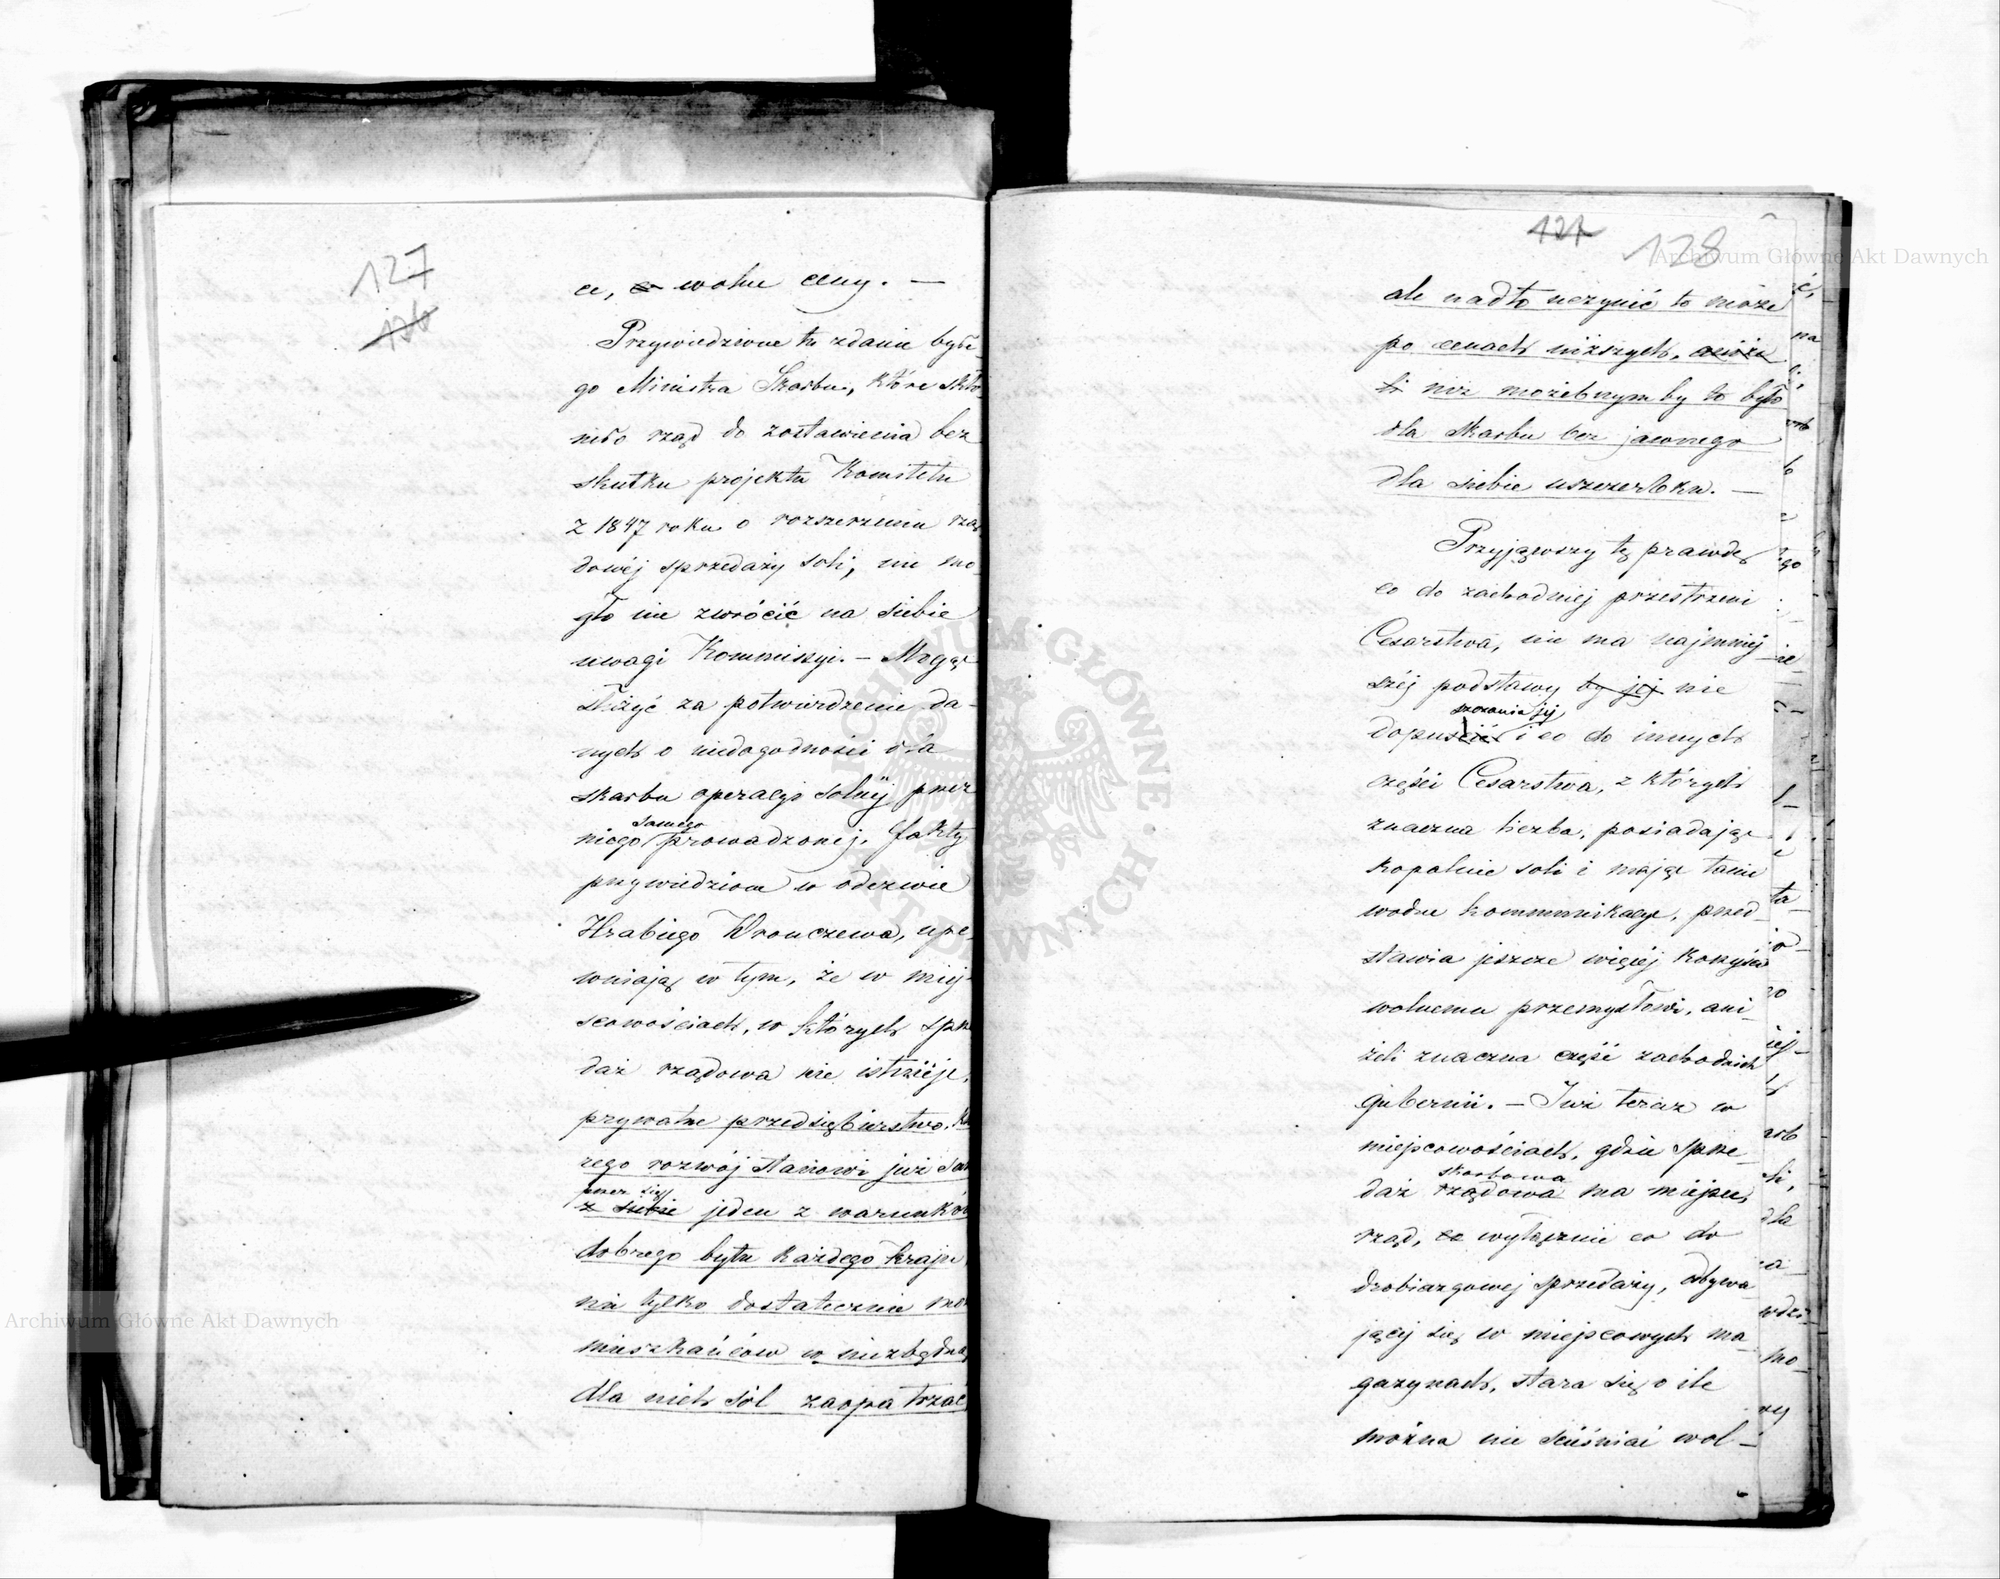 127
126
ce, wolne ceny. —
Przywiedzione tu zdanie były-
go Ministra Skarbu, które skło-
niło rząd do zostawienia bez
skutku projektu Komitetu
z 1847 roku o rozszerzeniu rzą-
dowéj sprzedaży soli, nie mo-
gło nie zwrócić na siebie
uwagi Kommissyi. — Mogąc
służyć za potwierdzenie da-
nych o niedogodności dla
skarbu operacyi solnéj przez
samego
niego prowadzonej, fakty
przywiedzione w odezwie
Hrabiego Wronczewa, upe-
wniają w tym, że w miej-
scowościach, w których sprze
daż rządowa nie istnieje,
prywatne przedsiębiorstwo, Któ
rego rozwój stanowi już sam
przez się
z siebie jeden z warunków
dobrego bytu każdego kraju
nie tylko dostatecznie może
mieszkańców w niezbędną
dla nich sól zaopatrzać
121
128
ale nadto uczynić to może
po cenach niższych, aniże
li niż możebnym by to było
dla skarbu bez jawnego
dla siebie uszczerbku. —
Przyjąwszy tę prawdę
co do zachodniej przestrzeni
Cesarstwa, nie ma najmniej
széj podstawy by jej nie
szczania jéj
dopuścić i co do innych
części Cesarstwa, z których
znaczna liczba, posiadając
kopalnie soli i mając tanie
wodne kommunikacye, przed
stawia jeszcze więcéj korzyści
wolnemu przemysłowi, ani-
żeli znaczna część zachodnich
gubernii. — Już teraz w
miejscowościach, gdzie sprze-
skarbowa
daż rządowa ma miejsce,
rząd, wyłącznie co do
drobiazgowej sprzedaży, odbywa
jącéj się w miejscowych ma
gazynach, stara się o ile
można nie ścieśniać wol-
Archiwum Główne Akt Dawnych
Archiwum Główne Akt Dawnych
ARCHIWUM GŁÓWNE AKT DAWNYCH